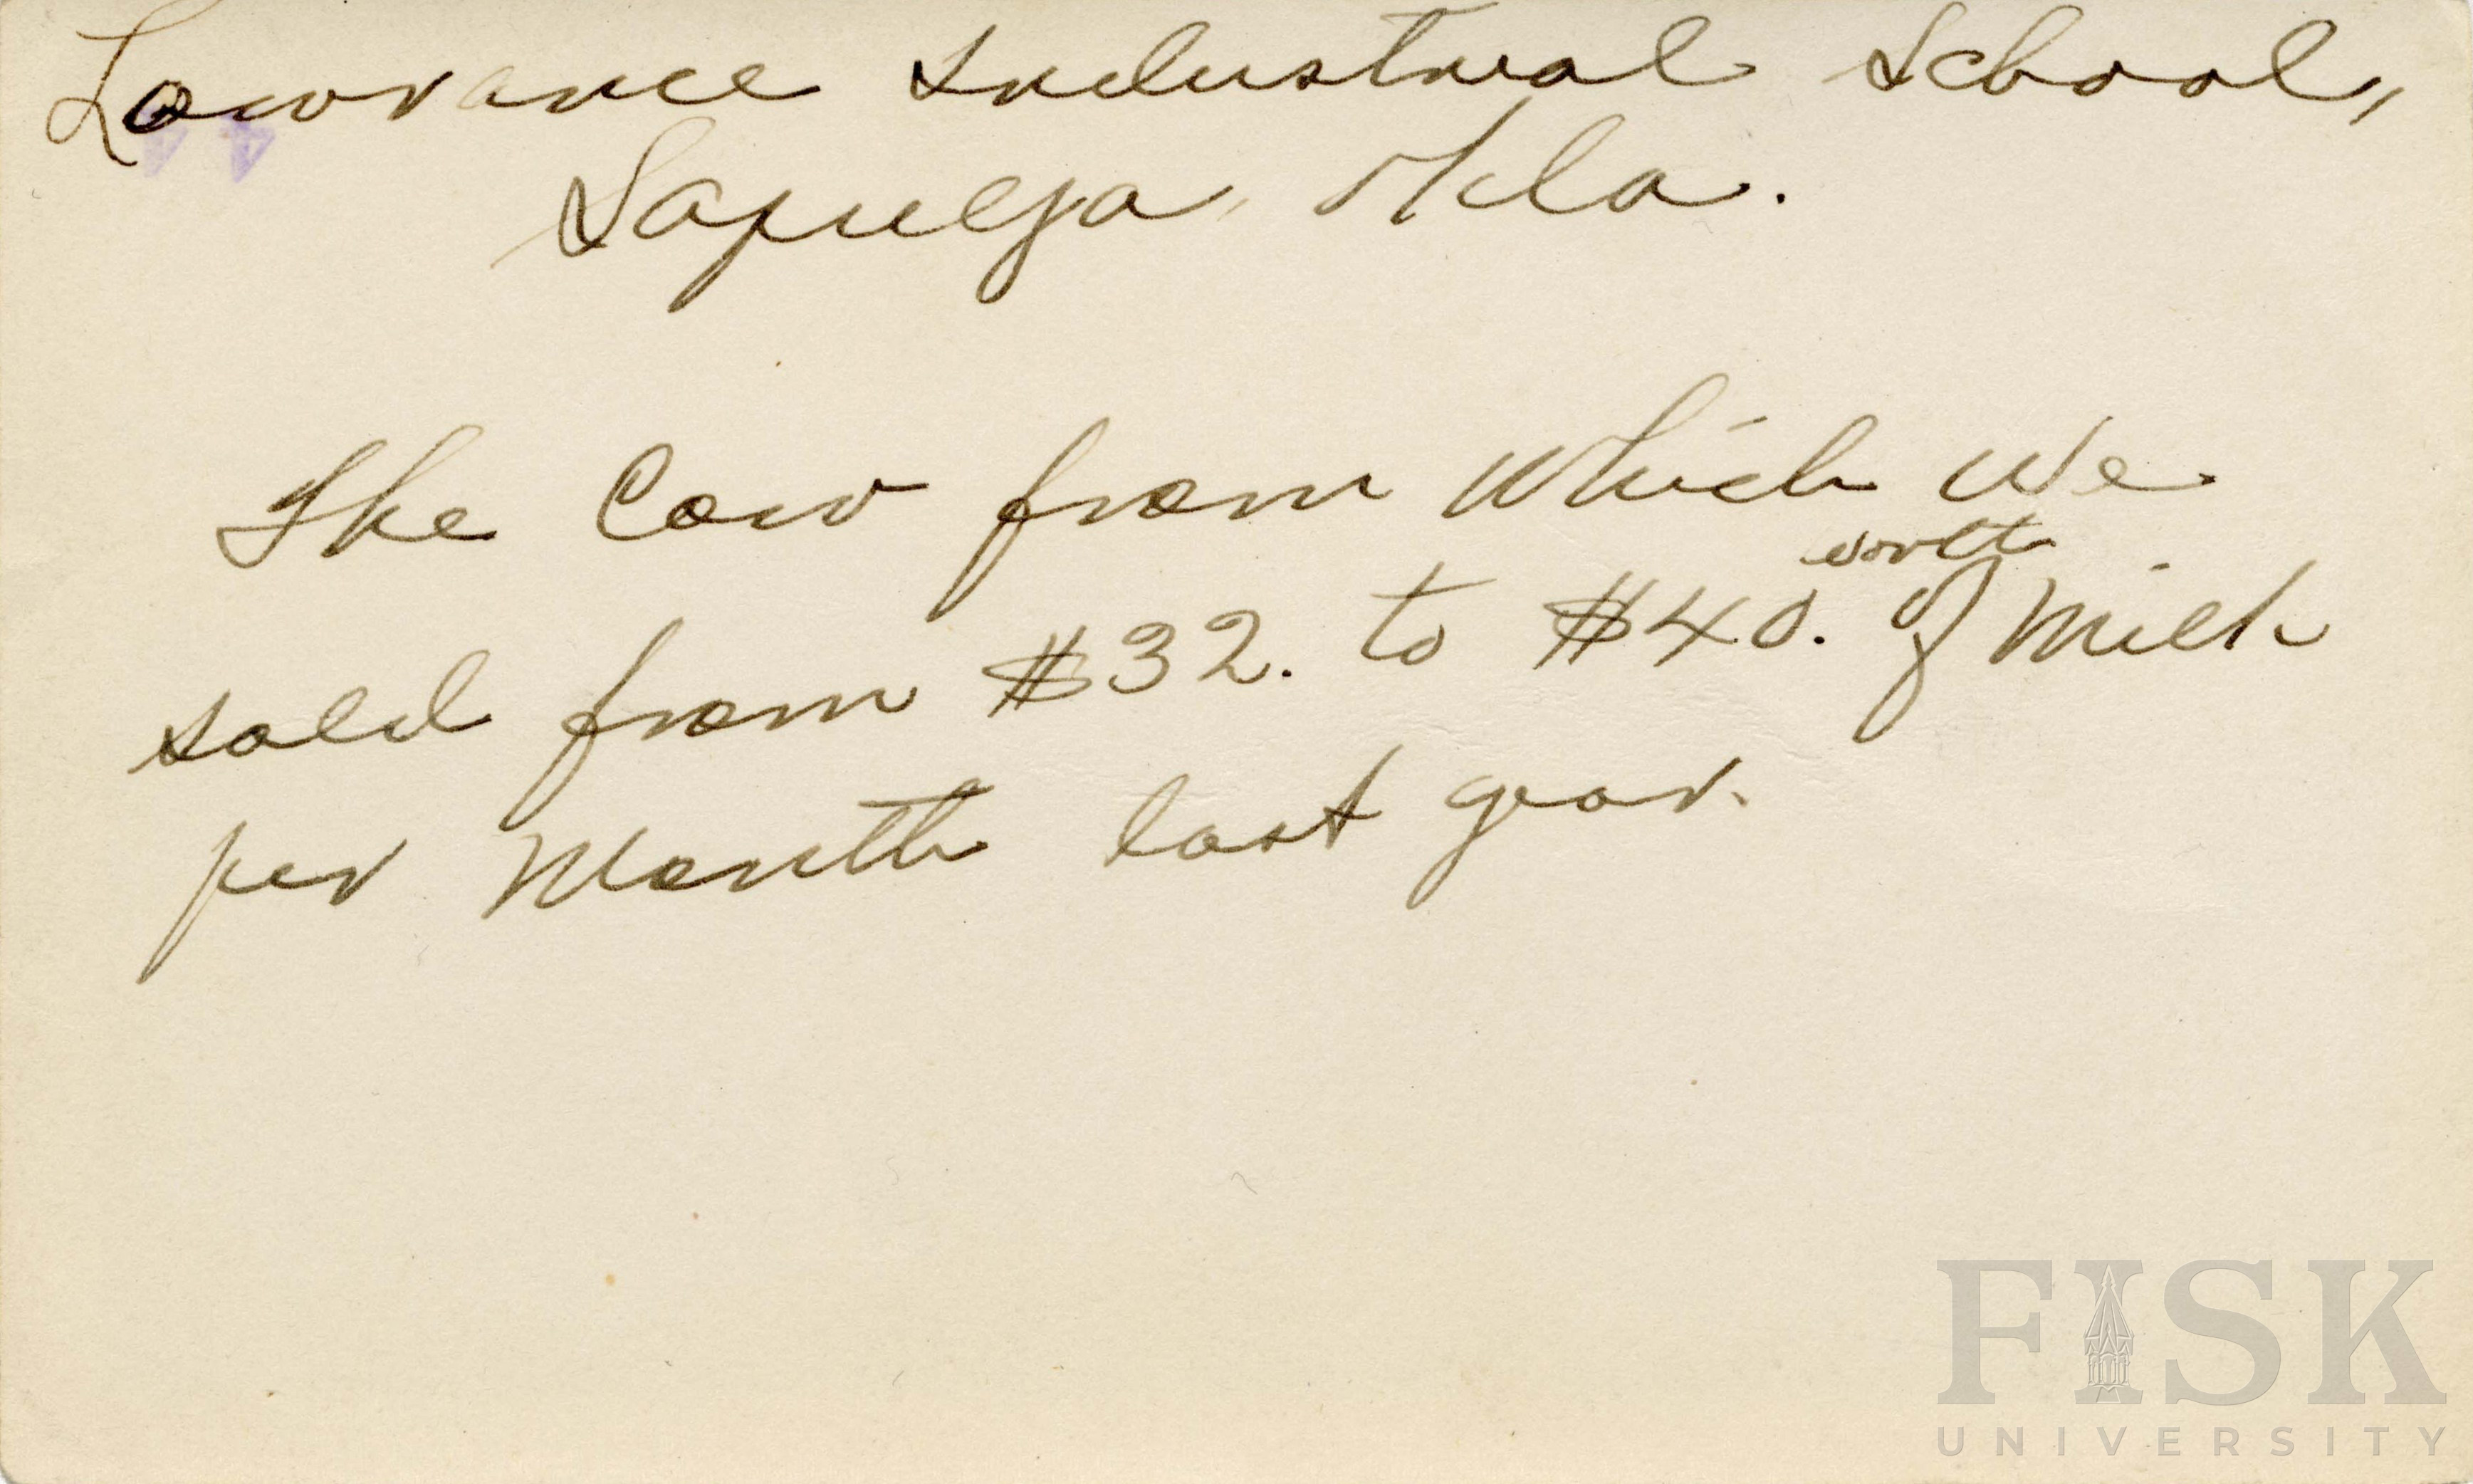 Lowrance Industrial School,
Sapulpa, Okla.
The Cow from which we
worth
sold from $32. to $40. of milk
per month last year.
FISK
UNIVERSITY